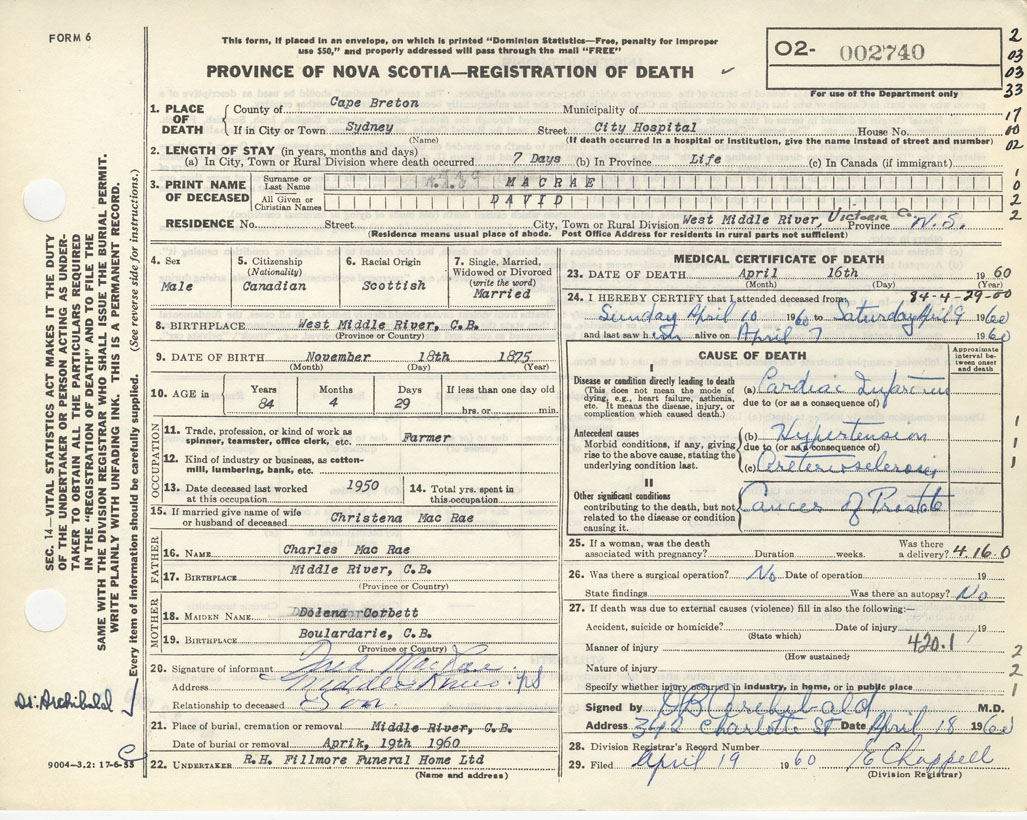 FORM 6
This form, if placed in an envelope, on which is printed "Dominion Statistics—Free, penalty for improper
use $50," and properly addressed will pass through the mail "FREE"
PROVINCE OF NOVA SCOTIA—REGISTRATION OF DEATH
02- 002740
For use of the Department only
2
03
03
33
17
00
02
1
0
2
2
1. PLACE OF DEATH
County of Cape Breton Municipality of
If in City or Town Sydney Street City Hospital House No.
(Name) (If death occurred in a hospital or institution, give the name instead of street and number)
2. LENGTH OF STAY (in years, months and days)
(a) In City, Town or Rural Division where death occurred 7 Days (b) In Province Life (c) In Canada (if immigrant)
3. PRINT NAME OF DECEASED
Surname or Last Name MACRAE
All Given or Christian Names DAVID
RESIDENCE No. Street City, Town or Rural Division West Middle River, Victoria Co. Province N.S.
(Residence means usual place of abode. Post Office Address for residents in rural parts not sufficient)
4. Sex
Male
5. Citizenship
(Nationality)
Canadian
6. Racial Origin
Scottish
7. Single, Married,
Widowed or Divorced
(write the word)
Married
8. BIRTHPLACE West Middle River, C.B.
(Province or Country)
9. DATE OF BIRTH November 18th 1875
(Month) (Day) (Year)
10. AGE in
Years Months Days If less than one day old
84 4 29 hrs. or min.
OCCUPATION
11. Trade, profession, or kind of work as
spinner, teamster, office clerk, etc. Farmer
12. Kind of industry or business, as cotton-
mill, lumbering, bank, etc.
13. Date deceased last worked
at this occupation 1950
14. Total yrs. spent in
this occupation
15. If married give name of wife
or husband of deceased Christena Mac Rae
FATHER
16. NAME Charles Mac Rae
17. BIRTHPLACE Middle River, C.B.
(Province or Country)
MOTHER
18. MAIDEN NAME Dolena Corbett
19. BIRTHPLACE Boulardarie, C.B.
(Province or Country)
20. Signature of informant Fred MacRae
Address Middle River ps
Relationship to deceased Son
21. Place of burial, cremation or removal Middle River, C.B.
Date of burial or removal Aprik, 19th 1960
22. UNDERTAKER R.H. Fillmore Funeral Home Ltd
(Name and address)
MEDICAL CERTIFICATE OF DEATH
23. DATE OF DEATH April 16th 1960
(Month) (Day) (Year)
84-4-29-00
24. I HEREBY CERTIFY that I attended deceased from
Sunday April 10 1960 to Saturday April 9 1960
and last saw him alive on April 7 1960
CAUSE OF DEATH
Approximate interval between onset and death
I
Disease or condition directly leading to death
(This does not mean the mode of
dying, e.g., heart failure, asthenia,
etc. It means the disease, injury, or
complication which caused death.)
(a) Cardiac Infarction
due to (or as a consequence of)
Antecedent causes
Morbid conditions, if any, giving
rise to the above cause, stating the
underlying condition last.
(b) Hypertension
due to (or as a consequence of)
(c) Arteriosclerosis
1
1
1
II
Other significant conditions
contributing to the death, but not
related to the disease or condition
causing it.
Cancer of Prostate
25. If a woman, was the death Was there
associated with pregnancy? Duration weeks. a delivery? 4.16.0
26. Was there a surgical operation? No Date of operation 19
State findings Was there an autopsy? No
27. If death was due to external causes (violence) fill in also the following:—
Accident, suicide or homicide? Date of injury 19
(State which)
Manner of injury 420.1
(How sustained)
Nature of injury
Specify whether injury occurred in industry, in home, or in public place
2
2
1
Signed by DB Archibald M.D.
Address 392 Charlotte St Date April 18 1960
28. Division Registrar's Record Number
29. Filed April 19 1960 E Chappell
(Division Registrar)
SEC. 14—VITAL STATISTICS ACT MAKES IT THE DUTY
OF THE UNDERTAKER OR PERSON ACTING AS UNDER-
TAKER TO OBTAIN ALL THE PARTICULARS REQUIRED
IN THE "REGISTRATION OF DEATH" AND TO FILE THE
SAME WITH THE DIVISION REGISTRAR WHO SHALL ISSUE THE BURIAL PERMIT.
WRITE PLAINLY WITH UNFADING INK. THIS IS A PERMANENT RECORD.
Every item of information should be carefully supplied. (See reverse side for instructions.)
Dr. Archibald
9004—3.2: 17-6-55